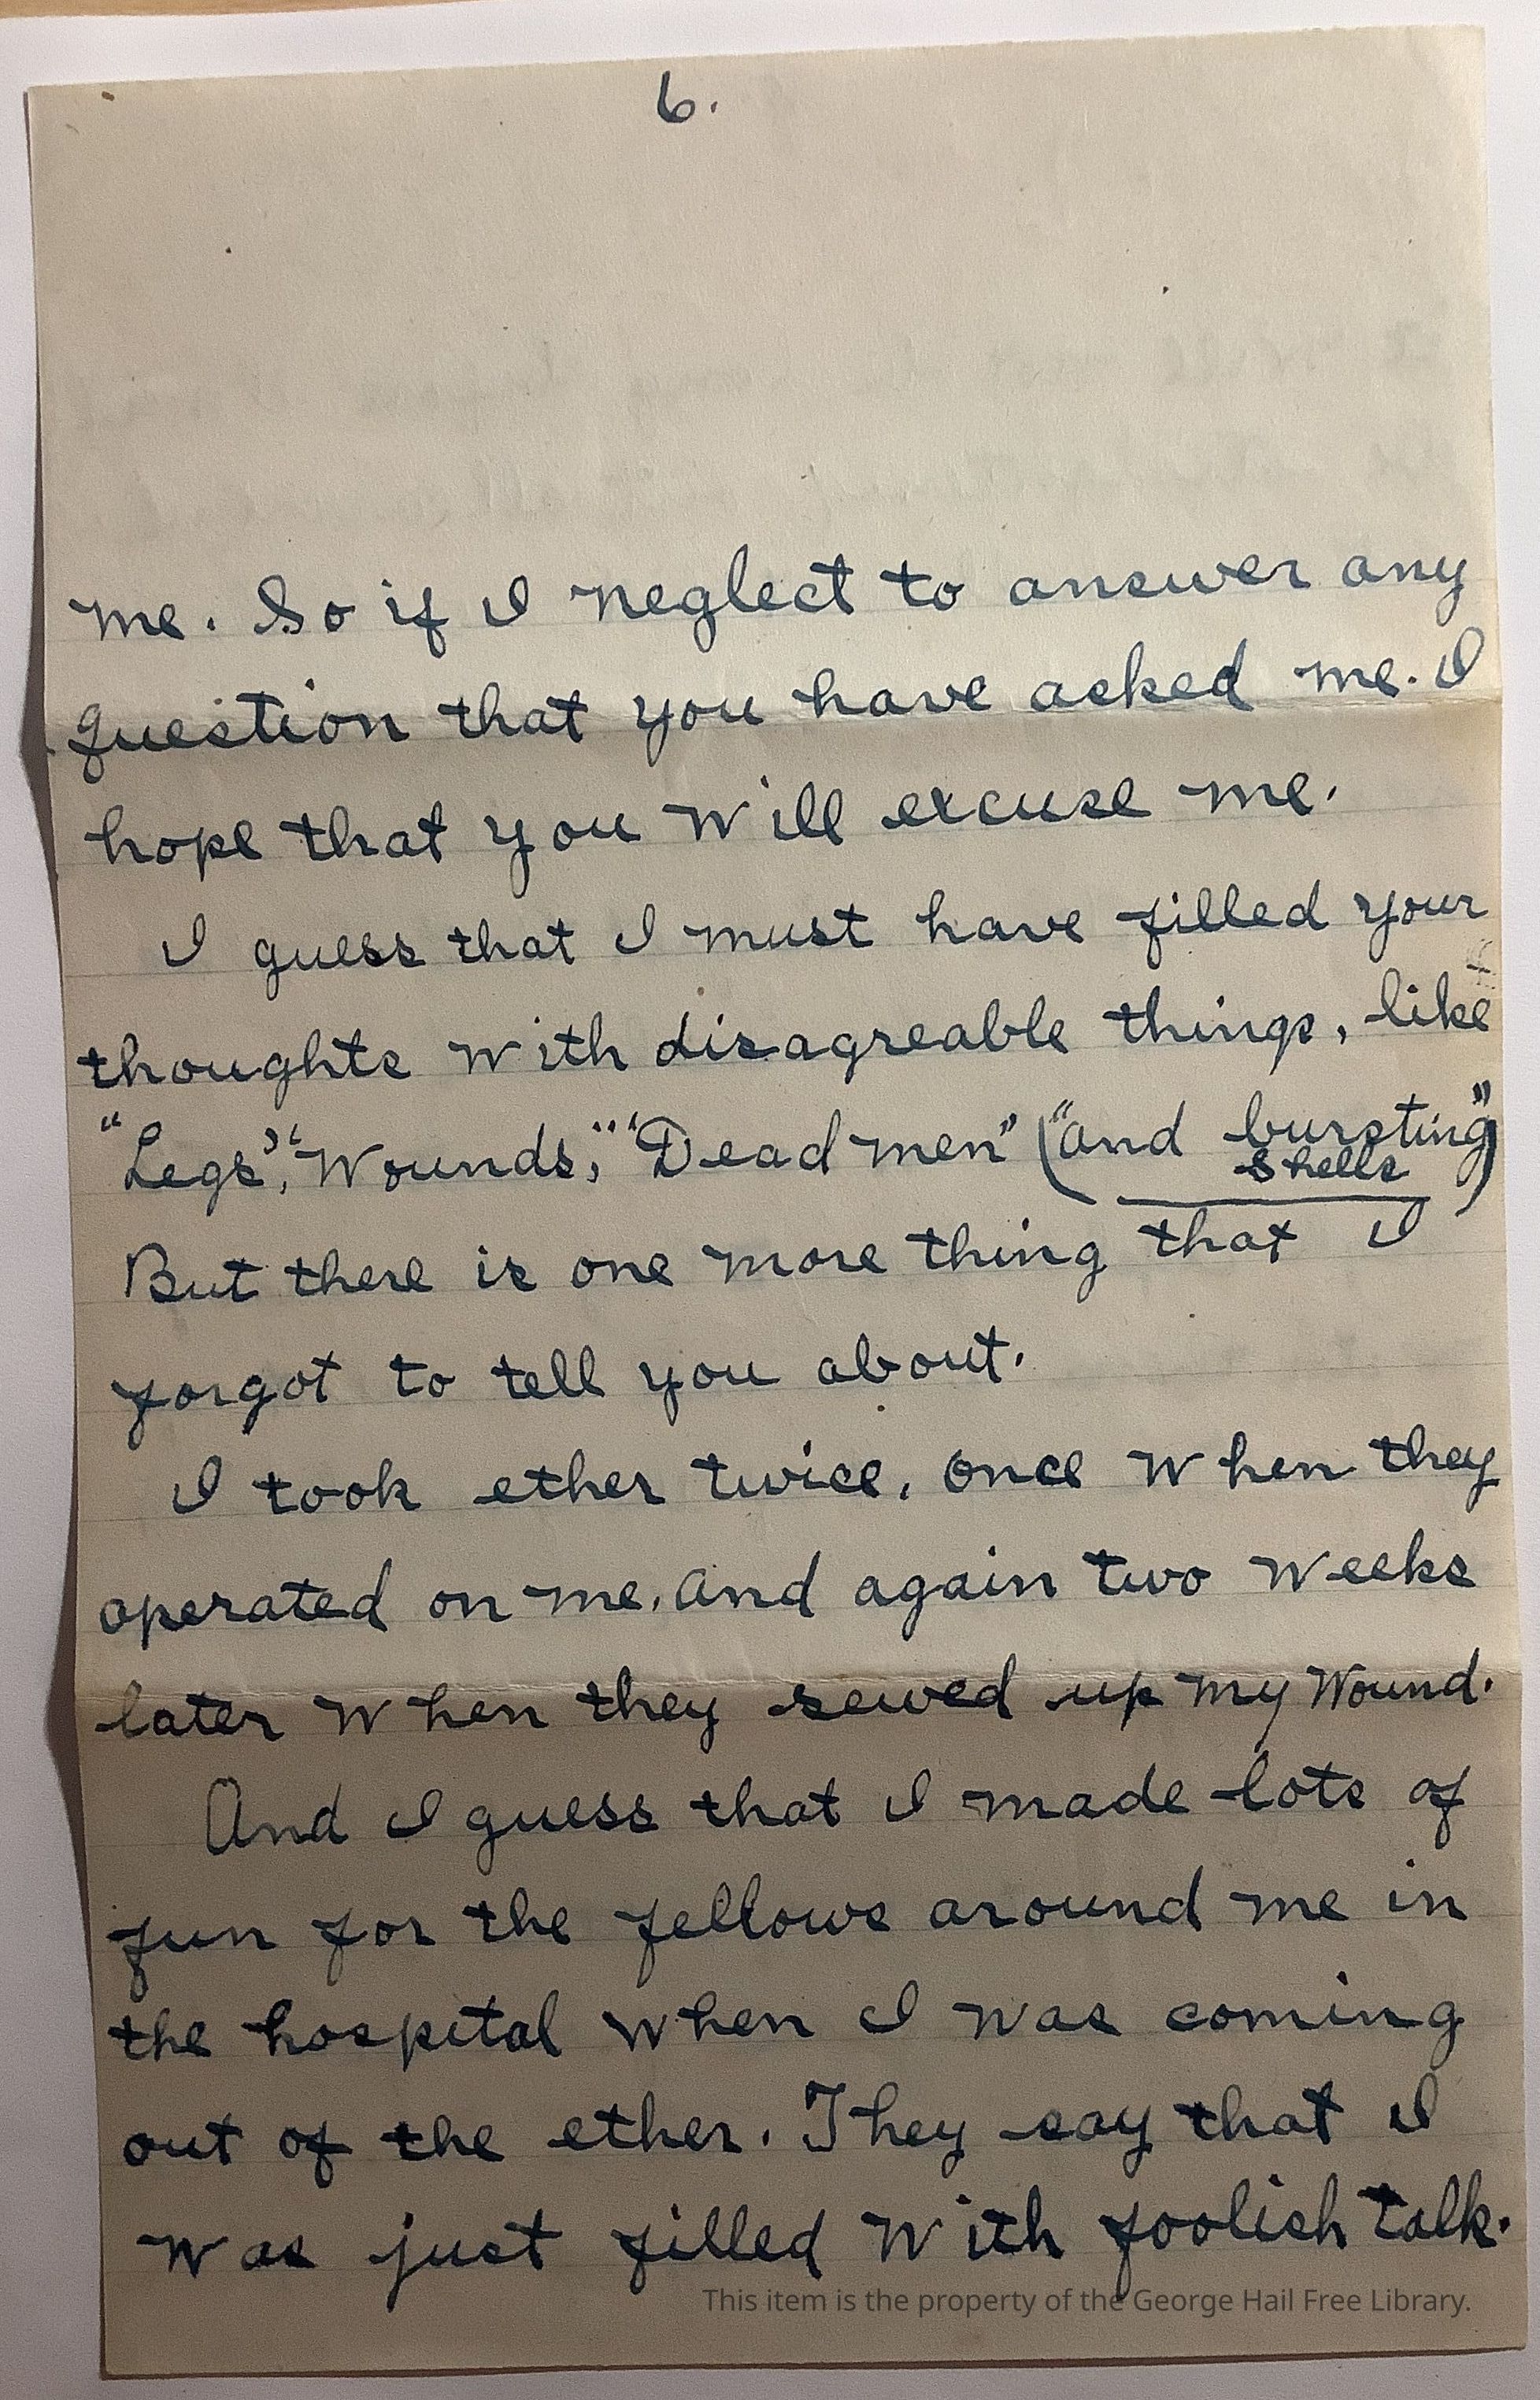 6.
me. So if I neglect to answer any
question that you have asked me. I
hope that you will excuse me.
I guess that I must have filled your
thoughts with disagreable things, like
"Legs", "Wounds," "Dead men" ("and bursting
shells")
But there is one more thing that I
forgot to tell you about.
I took ether twice, once when they
operated on me. And again two weeks
later when they sewed up my wound.
And I guess that I made lots of
fun for the fellows around me in
the hospital when I was coming
out of the ether. They say that I
was just filled with foolish talk.
This item is the property of the George Hail Free Library.